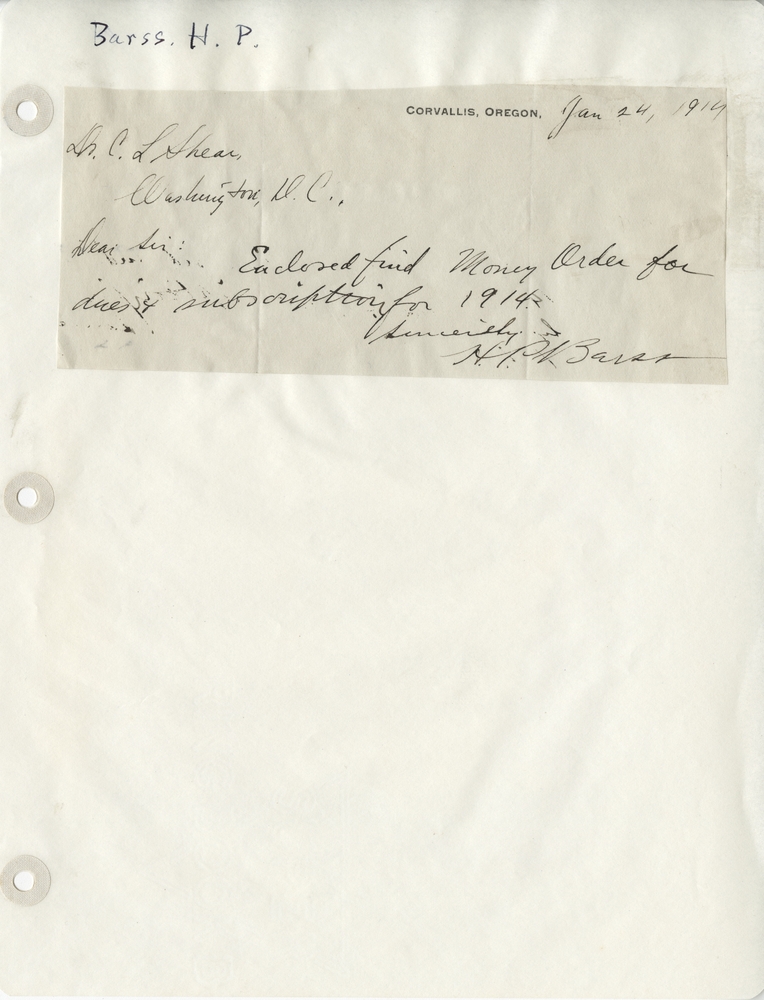 Barss. H. P.
CORVALLIS, OREGON, Jan 24, 1914
Dr. C. L Shear,
Washington, D. C.,
Dear Sir:
Enclosed find Money Order for
dues & subscription for 1914.
Sincerely
H. P. Barss